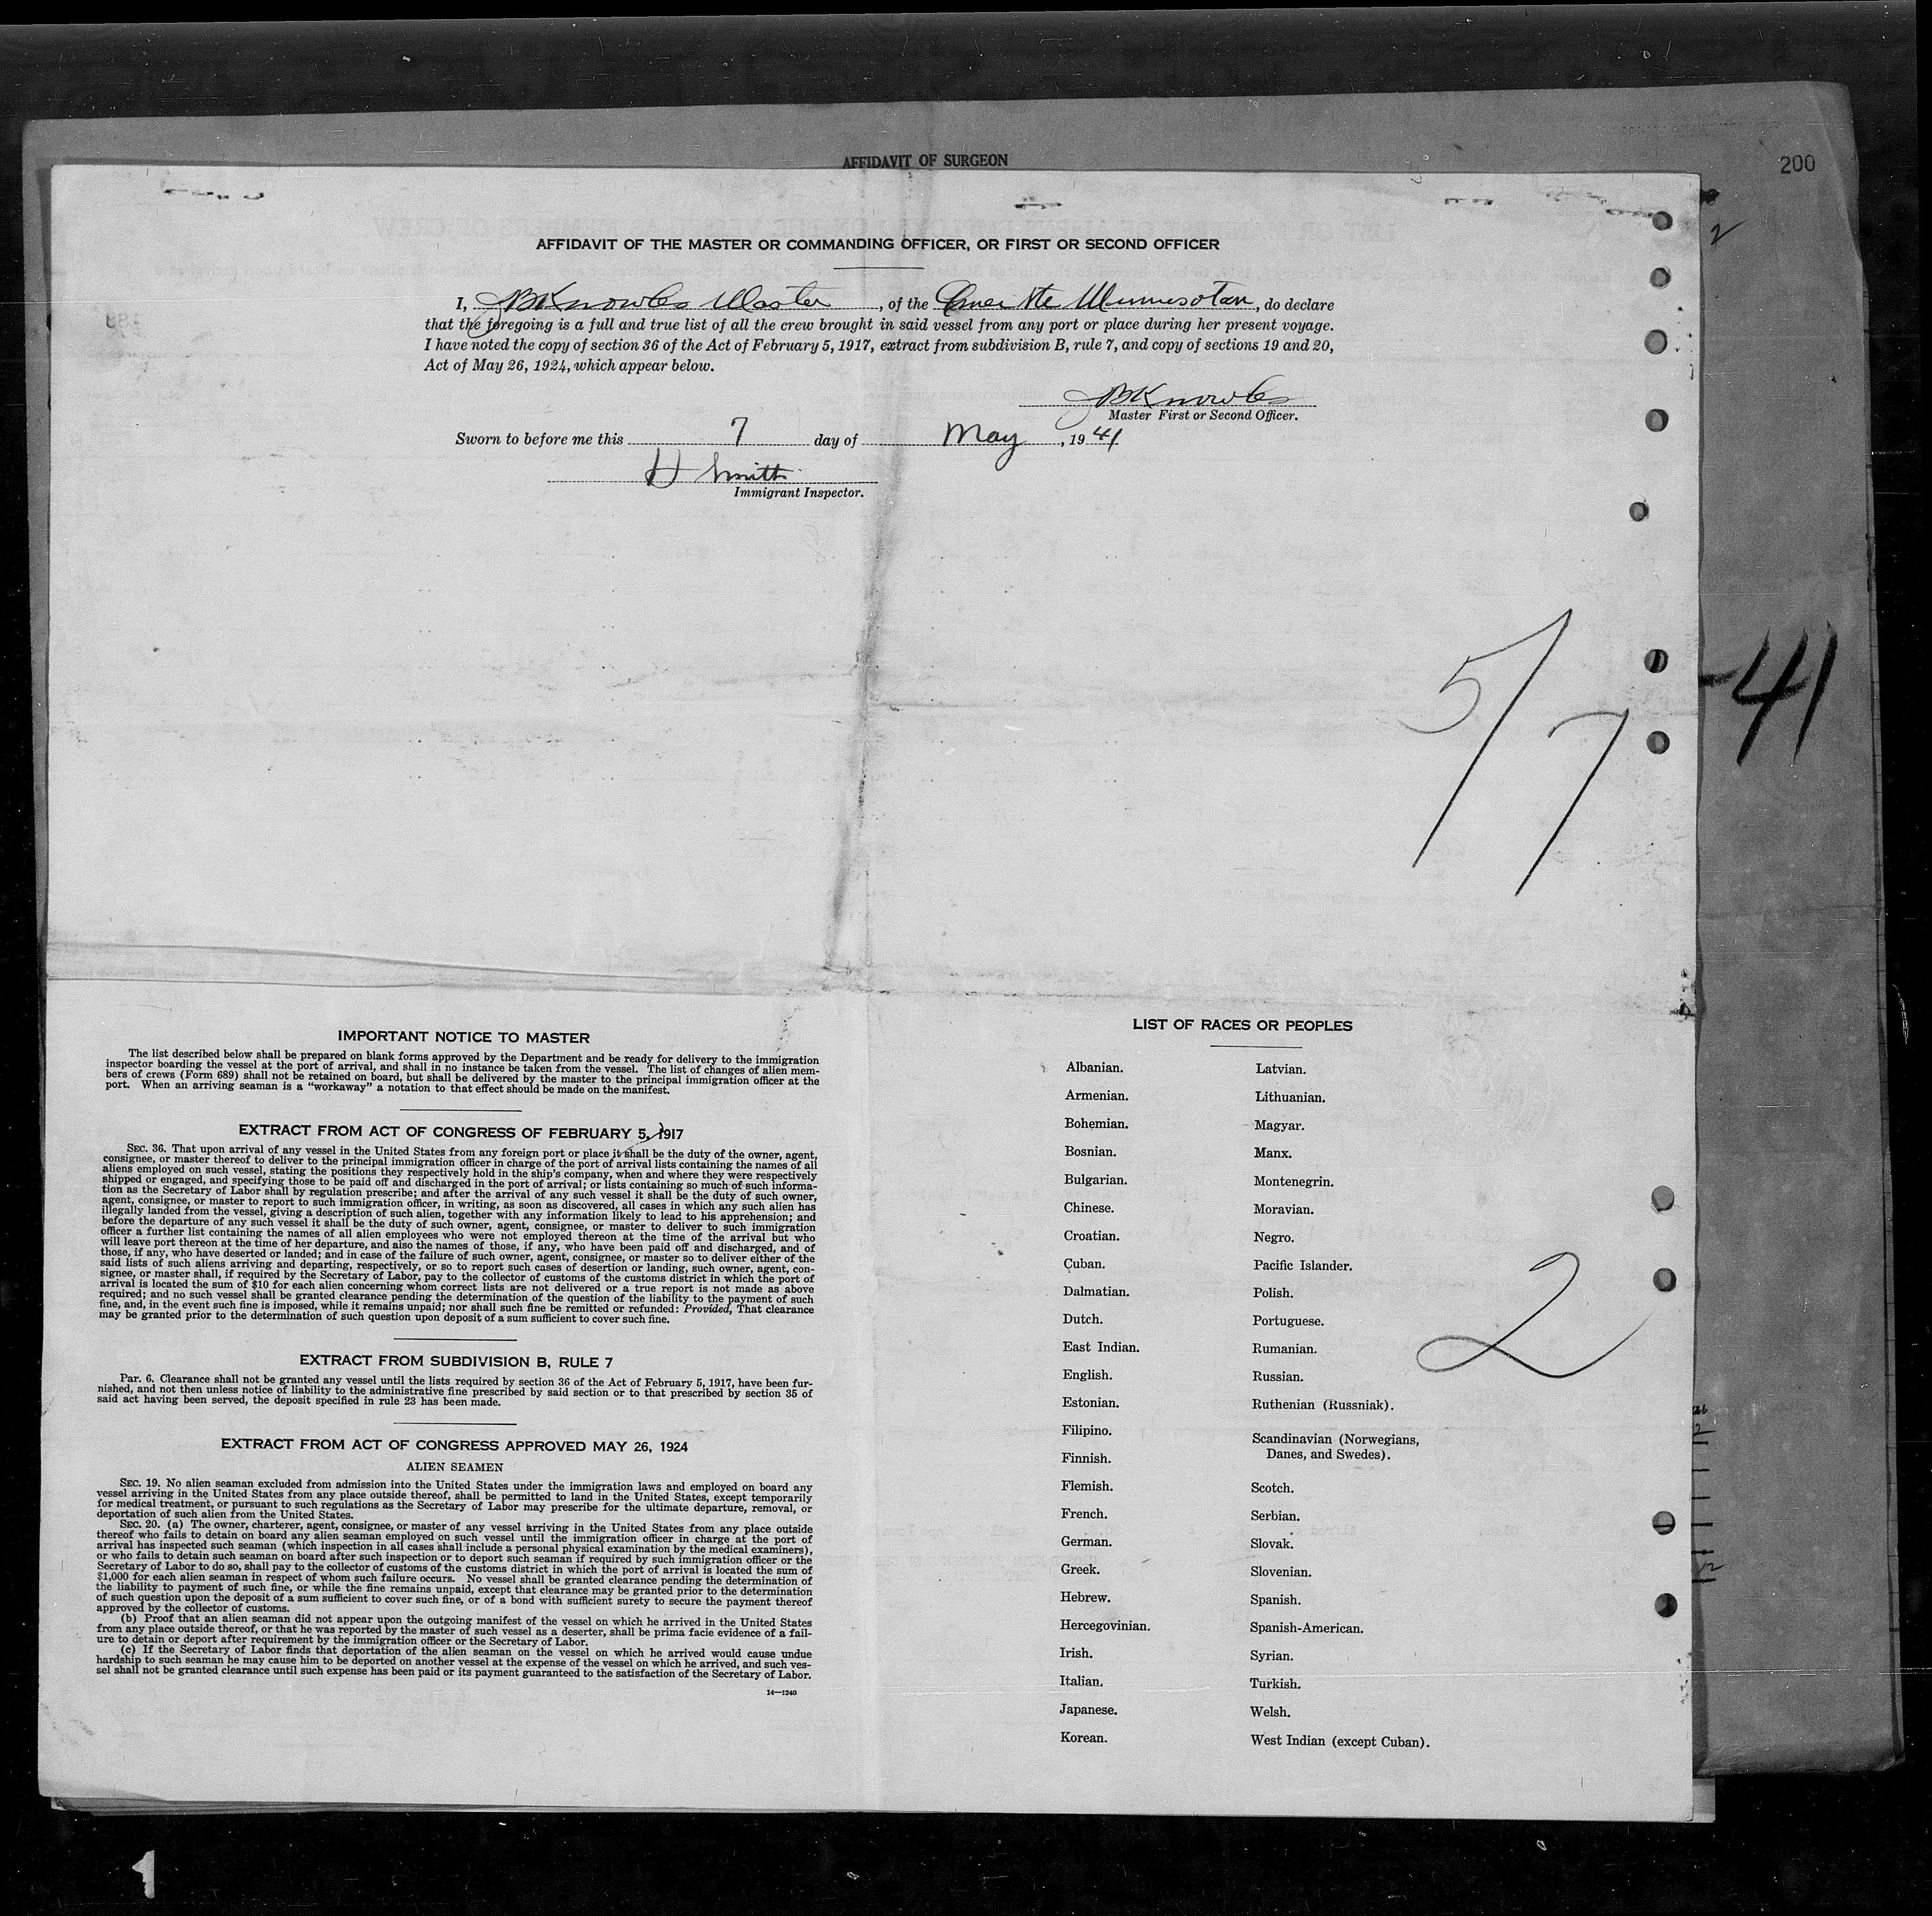 AFFIDAVIT OF SURGEON
200
2
AFFIDAVIT OF THE MASTER OR COMMANDING OFFICER, OR FIRST OR SECOND OFFICER
I, JB Knowles Master, of the Amer Ste Minnesotan, do declare
that the foregoing is a full and true list of all the crew brought in said vessel from any port or place during her present voyage.
I have noted the copy of section 36 of the Act of February 5, 1917, extract from subdivision B, rule 7, and copy of sections 19 and 20,
Act of May 26, 1924, which appear below.
JB Knowles
Master First or Second Officer.
Sworn to before me this 7 day of May, 1941
H Smith
Immigrant Inspector.
5/7
-41
IMPORTANT NOTICE TO MASTER
The list described below shall be prepared on blank forms approved by the Department and be ready for delivery to the immigration
inspector boarding the vessel at the port of arrival, and shall in no instance be taken from the vessel. The list of changes of alien mem-
bers of crews (Form 689) shall not be retained on board, but shall be delivered by the master to the principal immigration officer at the
port. When an arriving seaman is a "workaway" a notation to that effect should be made on the manifest.
EXTRACT FROM ACT OF CONGRESS OF FEBRUARY 5, 1917
SEC. 36. That upon arrival of any vessel in the United States from any foreign port or place it shall be the duty of the owner, agent,
consignee, or master thereof to deliver to the principal immigration officer in charge of the port of arrival lists containing the names of all
aliens employed on such vessel, stating the positions they respectively hold in the ship's company, when and where they were respectively
shipped or engaged, and specifying those to be paid off and discharged in the port of arrival; or lists containing so much of such informa-
tion as the Secretary of Labor shall by regulation prescribe; and after the arrival of any such vessel it shall be the duty of such owner,
agent, consignee, or master to report to such immigration officer, in writing, as soon as discovered, all cases in which any such alien has
illegally landed from the vessel, giving a description of such alien, together with any information likely to lead to his apprehension; and
before the departure of any such vessel it shall be the duty of such owner, agent, consignee, or master to deliver to such immigration
officer a further list containing the names of all alien employees who were not employed thereon at the time of the arrival but who
will leave port thereon at the time of her departure, and also the names of those, if any, who have been paid off and discharged, and of
those, if any, who have deserted or landed; and in case of the failure of such owner, agent, consignee, or master so to deliver either of the
said lists of such aliens arriving and departing, respectively, or so to report such cases of desertion or landing, such owner, agent, con-
signee, or master shall, if required by the Secretary of Labor, pay to the collector of customs of the customs district in which the port of
arrival is located the sum of $10 for each alien concerning whom correct lists are not delivered or a true report is not made as above
required; and no such vessel shall be granted clearance pending the determination of the question of the liability to the payment of such
fine, and, in the event such fine is imposed, while it remains unpaid; nor shall such fine be remitted or refunded: Provided, That clearance
may be granted prior to the determination of such question upon deposit of a sum sufficient to cover such fine.
EXTRACT FROM SUBDIVISION B, RULE 7
Par. 6. Clearance shall not be granted any vessel until the lists required by section 36 of the Act of February 5, 1917, have been fur-
nished, and not then unless notice of liability to the administrative fine prescribed by said section or to that prescribed by section 35 of
said act having been served, the deposit specified in rule 23 has been made.
EXTRACT FROM ACT OF CONGRESS APPROVED MAY 26, 1924
ALIEN SEAMEN
SEC. 19. No alien seaman excluded from admission into the United States under the immigration laws and employed on board any
vessel arriving in the United States from any place outside thereof, shall be permitted to land in the United States, except temporarily
for medical treatment, or pursuant to such regulations as the Secretary of Labor may prescribe for the ultimate departure, removal, or
deportation of such alien from the United States.
SEC. 20. (a) The owner, charterer, agent, consignee, or master of any vessel arriving in the United States from any place outside
thereof who fails to detain on board any alien seaman employed on such vessel until the immigration officer in charge at the port of
arrival has inspected such seaman (which inspection in all cases shall include a personal physical examination by the medical examiners),
or who fails to detain such seaman on board after such inspection or to deport such seaman if required by such immigration officer or the
Secretary of Labor to do so, shall pay to the collector of customs of the customs district in which the port of arrival is located the sum of
$1,000 for each alien seaman in respect of whom such failure occurs. No vessel shall be granted clearance pending the determination of
the liability to payment of such fine, or while the fine remains unpaid, except that clearance may be granted prior to the determination
of such question upon the deposit of a sum sufficient to cover such fine, or of a bond with sufficient surety to secure the payment thereof
approved by the collector of customs.
(b) Proof that an alien seaman did not appear upon the outgoing manifest of the vessel on which he arrived in the United States
from any place outside thereof, or that he was reported by the master of such vessel as a deserter, shall be prima facie evidence of a fail-
ure to detain or deport after requirement by the immigration officer or the Secretary of Labor.
(c) If the Secretary of Labor finds that deportation of the alien seaman on the vessel on which he arrived would cause undue
hardship to such seaman he may cause him to be deported on another vessel at the expense of the vessel on which he arrived, and such ves-
sel shall not be granted clearance until such expense has been paid or its payment guaranteed to the satisfaction of the Secretary of Labor.
14—1240
LIST OF RACES OR PEOPLES
Albanian.
Armenian.
Bohemian.
Bosnian.
Bulgarian.
Chinese.
Croatian.
Cuban.
Dalmatian.
Dutch.
East Indian.
English.
Estonian.
Filipino.
Finnish.
Flemish.
French.
German.
Greek.
Hebrew.
Hercegovinian.
Irish.
Italian.
Japanese.
Korean.
Latvian.
Lithuanian.
Magyar.
Manx.
Montenegrin.
Moravian.
Negro.
Pacific Islander.
Polish.
Portuguese.
Rumanian.
Russian.
Ruthenian (Russniak).
Scandinavian (Norwegians,
Danes, and Swedes).
Scotch.
Serbian.
Slovak.
Slovenian.
Spanish.
Spanish-American.
Syrian.
Turkish.
Welsh.
West Indian (except Cuban).
2
1